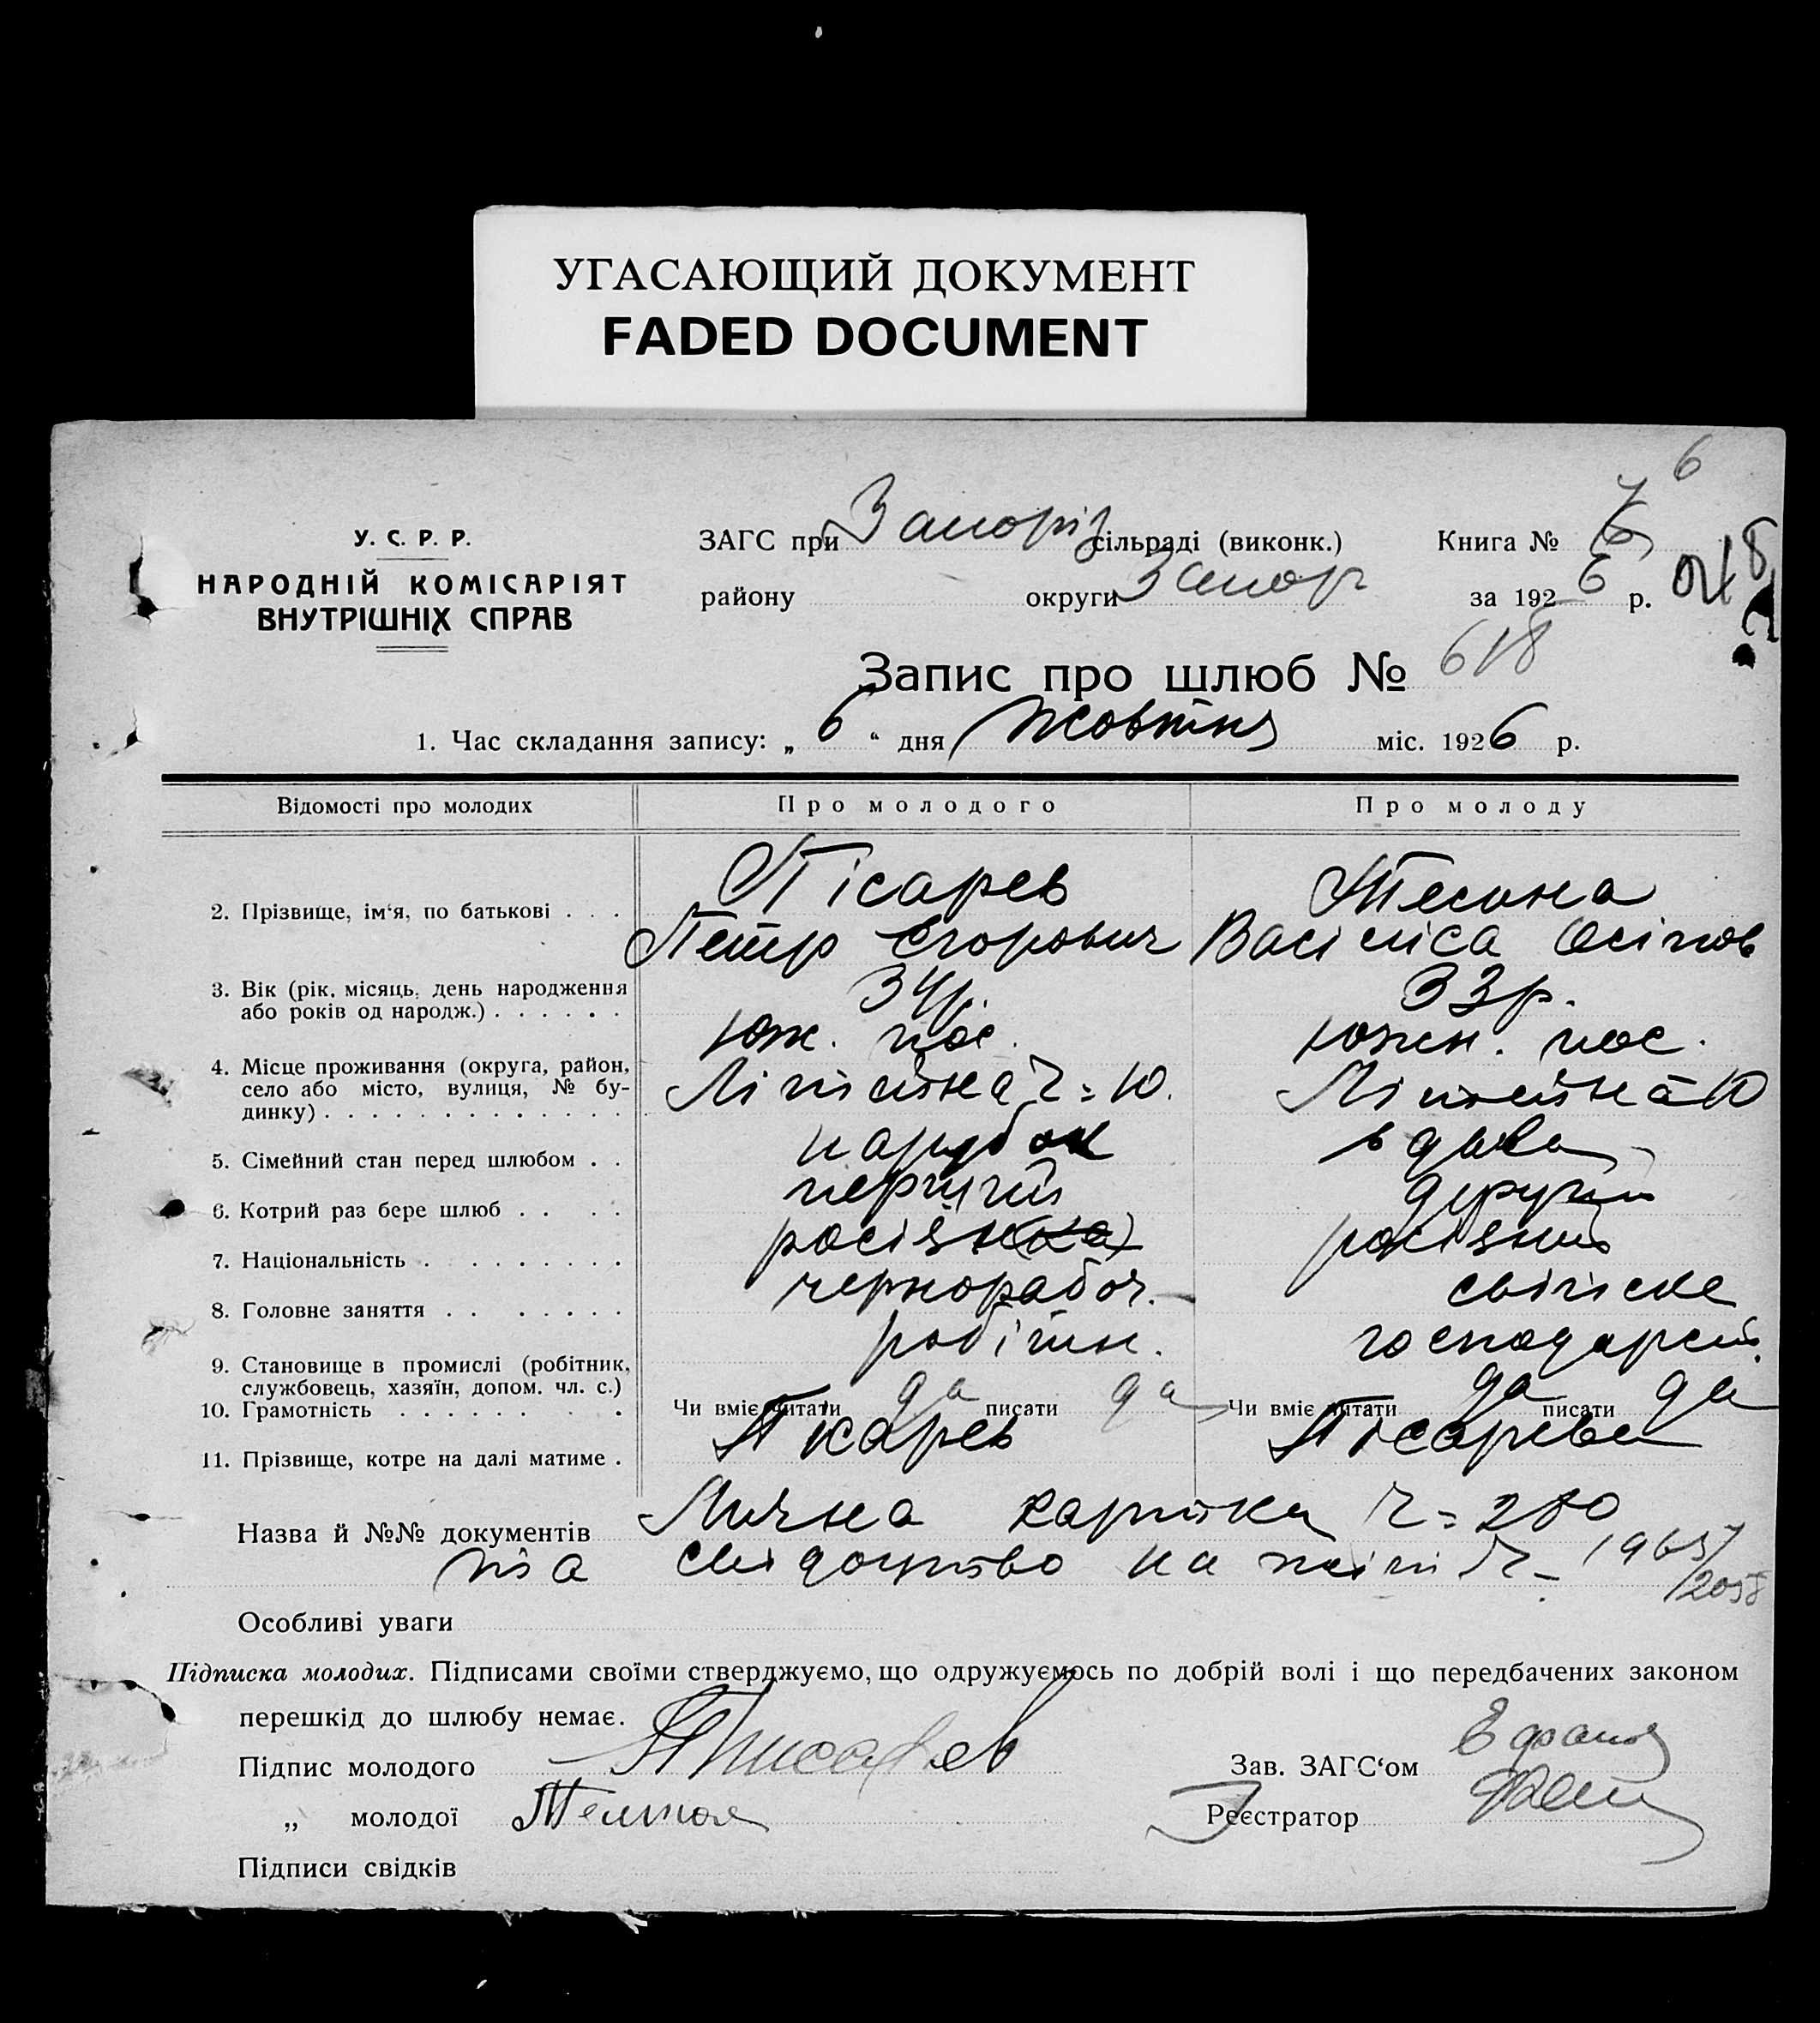 УГАСАЮЩИЙ ДОКУМЕНТ
FADED DOCUMENT
6
У. С. Р. Р.
НАРОДНІЙ КОМІСАРІЯТ
ВНУТРІШНІХ СПРАВ
ЗАГС при Запоріз сільраді (виконк.) Книга №
району округи Запор за 1926 р.
Запис про шлюб № 618
1. Час складання запису: „ 6 “ дня Жовтня міс. 1926 р.
Відомості про молодих Про молодого Про молоду
2. Прізвище, ім‘я, по батькові . . . Пісарев Петр Єгорович Васіліса Осіпов
3. Вік (рік, місяць, день народження
або років од народж.) . . . . . . 34р. 33р.
4. Місце проживання (округа, район,
село або місто, вулиця, № бу-
динку) . . . . . . . . . . . . . Юж. пос. Літейна Ч=10. Южн. пос. Літейна 10
5. Сімейний стан перед шлюбом . . парубок вдова
6. Котрий раз бере шлюб . . . . перший другий
7. Національність . . . . . . . . росіян(ка) росіянка
8. Головне заняття . . . . . . . чернорабоч. світске
9. Становище в промислі (робітник,
службовець, хазяїн, допом. чл. с.) робітн. господарст.
10. Грамотність . . . . . . . . Чи вміє читати да писати да Чи вміє читати да писати да
11. Прізвище, котре на далі матиме . Пісарев Пісарева
Назва й №№ документів Лична картка Ч=280
свідоцтво на Ч= 1965/2058
Особливі уваги
Підписка молодих. Підписами своїми стверджуємо, що одружуємось по добрій волі і що передбачених законом
перешкід до шлюбу немає.
Підпис молодого Писарев Зав. ЗАГС‘ом
„ молодої Реєстратор
Підписи свідків